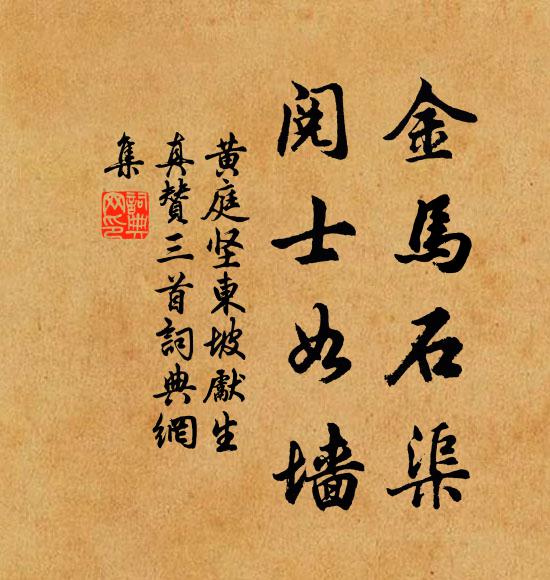 金馬石渠
阅士如墙
黄庭坚東坡獻生
真贊三首詞典網
集
詞典網印